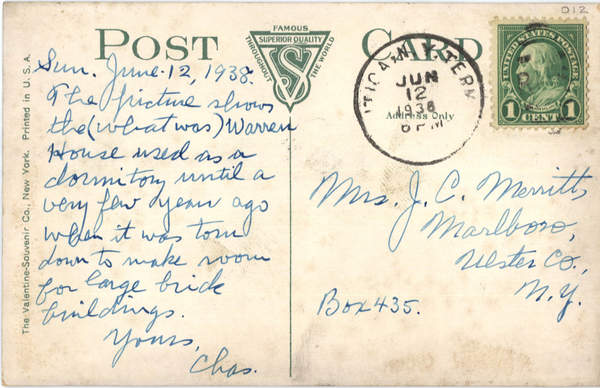 012
POST CARD
FAMOUS
SUPERIOR QUALITY
THROUGHOUT THE WORLD
VS
Sun. June 12, 1938.
The picture shows
the (what was) Warren
House used as a
dormitory until a
very few years ago
when it was torn
down to make room
for large brick
buildings.
Yours,
Chas.
The Valentine-Souvenir Co., New York. Printed in U. S. A.
UTICA, N. Y. TERM
JUN
12
1938
6 PM
Address Only
UNITED STATES POSTAGE
1 CENT 1
Mrs. J. C. Merritt,
Marlboro,
Ulster Co.,
N.Y.
Box 435.